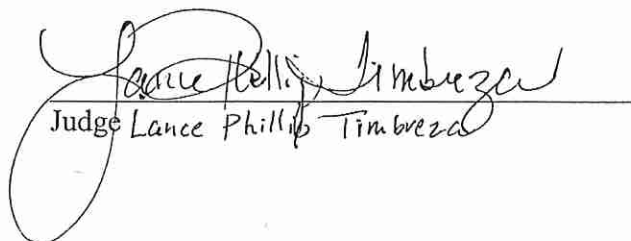 Lance Phillip Timbreza
Judge Lance Phillip Timbreza